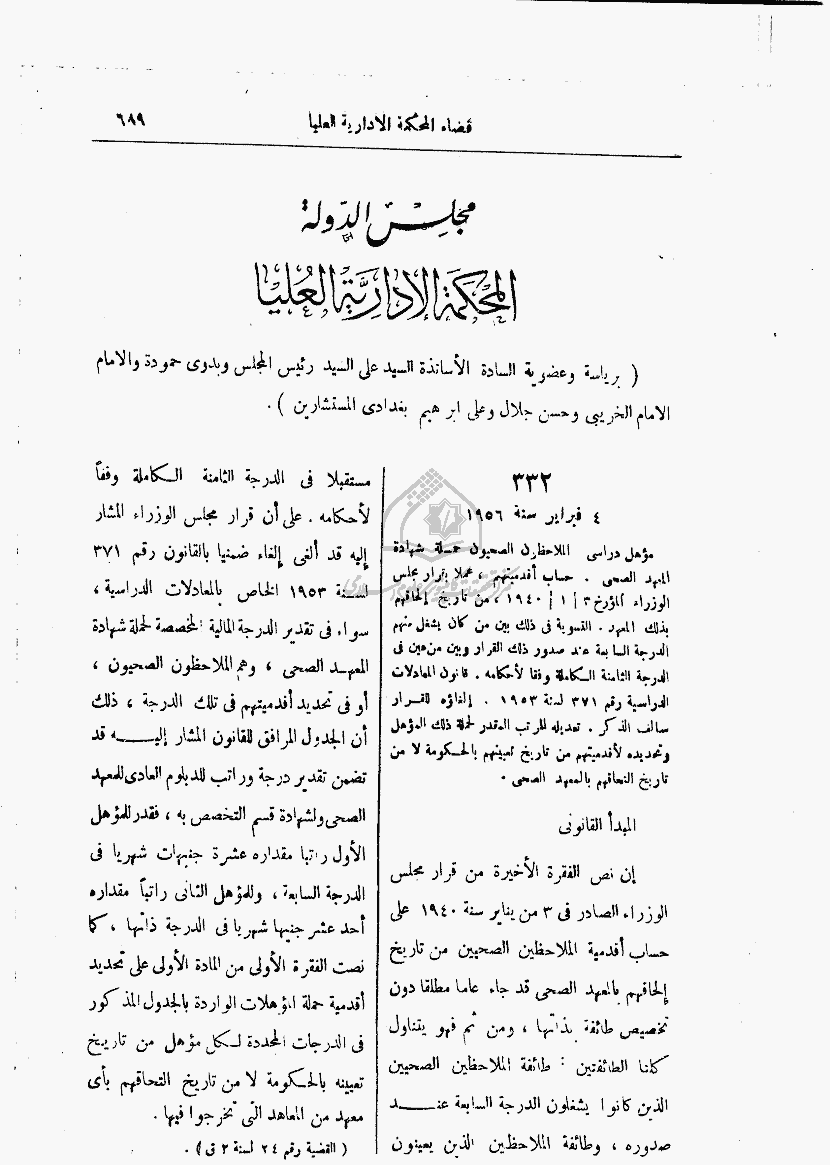 قضاء المحكمة الادارية العليا ٦٨٩
مجلس الدولة
المحكمة الإدارية العليا
( برياسة وعضوية السادة الأساتذة السيد على السيد رئيس المجلس وبدوى حمودة والامام
الامام الخريبى وحسن جلال وعلى ابرهيم بغدادى المستشارين ) .
٣٣٢
٤ فبراير سنة ١٩٥٦
مؤهل دراسى الملاحظون الصحيون حملة شهادة
المعهد الصحى . حساب أقدميتهم ، عملا بقرار مجلس
الوزراء المؤرخ ٣ / ١ / ١٩٤٠ ، من تاريخ إلحاقهم
بذلك المعهد . التسوية فى ذلك بين من كان يشغل منهم
الدرجة السابعة عند صدور ذلك القرار وبين من عين فى
الدرجة الثامنة الكاملة وفقا لأحكامه . قانون المعادلات
الدراسية رقم ٣٧١ لسنة ١٩٥٣ . إلغاؤه للقرار
سالف الذكر . تعديله المرتب المقدر لحملة ذلك المؤهل
وتحديده لأقدميتهم من تاريخ تعيينهم بالحكومة لا من
تاريخ التحاقهم بالمعهد الصحى .
المبدأ القانونى
إن نص الفقرة الأخيرة من قرار مجلس
الوزراء الصادر فى ٣ من يناير سنة ١٩٤٠ على
حساب أقدمية الملاحظين الصحيين من تاريخ
إلحاقهم بالمعهد الصحى قد جاء عاما مطلقا دون
تخصيص طائفة بذاتها ، ومن ثم فهو يتناول
كلتا الطائفتين : طائفة الملاحظين الصحيين
الذين كانوا يشغلون الدرجة السابعة عنـــد
صدوره ، وطائفة الملاحظين الذين يعينون
مستقبلا فى الدرجة الثامنة الكاملة وفقاً
لأحكامه . على أن قرار مجلس الوزراء المشار
إليه قد ألغى إلغاء ضمنيا بالقانون رقم ٣٧١
لسنة ١٩٥٣ الخاص بالمعادلات الدراسية ،
سواء فى تقدير الدرجة المالية المخصصة لحملة شهادة
المعهد الصحى ، وهم الملاحظون الصحيون ،
أو فى تحديد أقدميتهم فى تلك الدرجة ، ذلك
أن الجدول المرافق للقانون المشار إليـــه قد
تضمن تقدير درجة وراتب للدبلوم العادى للمعهد
الصحى ولشهادة قسم التخصص به ، فقدر للمؤهل
الأول راتبا مقداره عشرة جنيهات شهريا فى
الدرجة السابعة ، وللمؤهل الثانى راتباً مقداره
أحد عشر جنيها شهريا فى الدرجة ذاتها ، كما
نصت الفقرة الأولى من المادة الأولى على تحديد
أقدمية حملة المؤهلات الواردة بالجدول المذكور
فى الدرجات المحددة لكل مؤهل من تاريخ
تعيينه بالحكومة لا من تاريخ التحاقهم بأى
معهد من المعاهد التى تخرجوا فيها .
( القضية رقم ٢٤ لسنة ٢ ق ) .